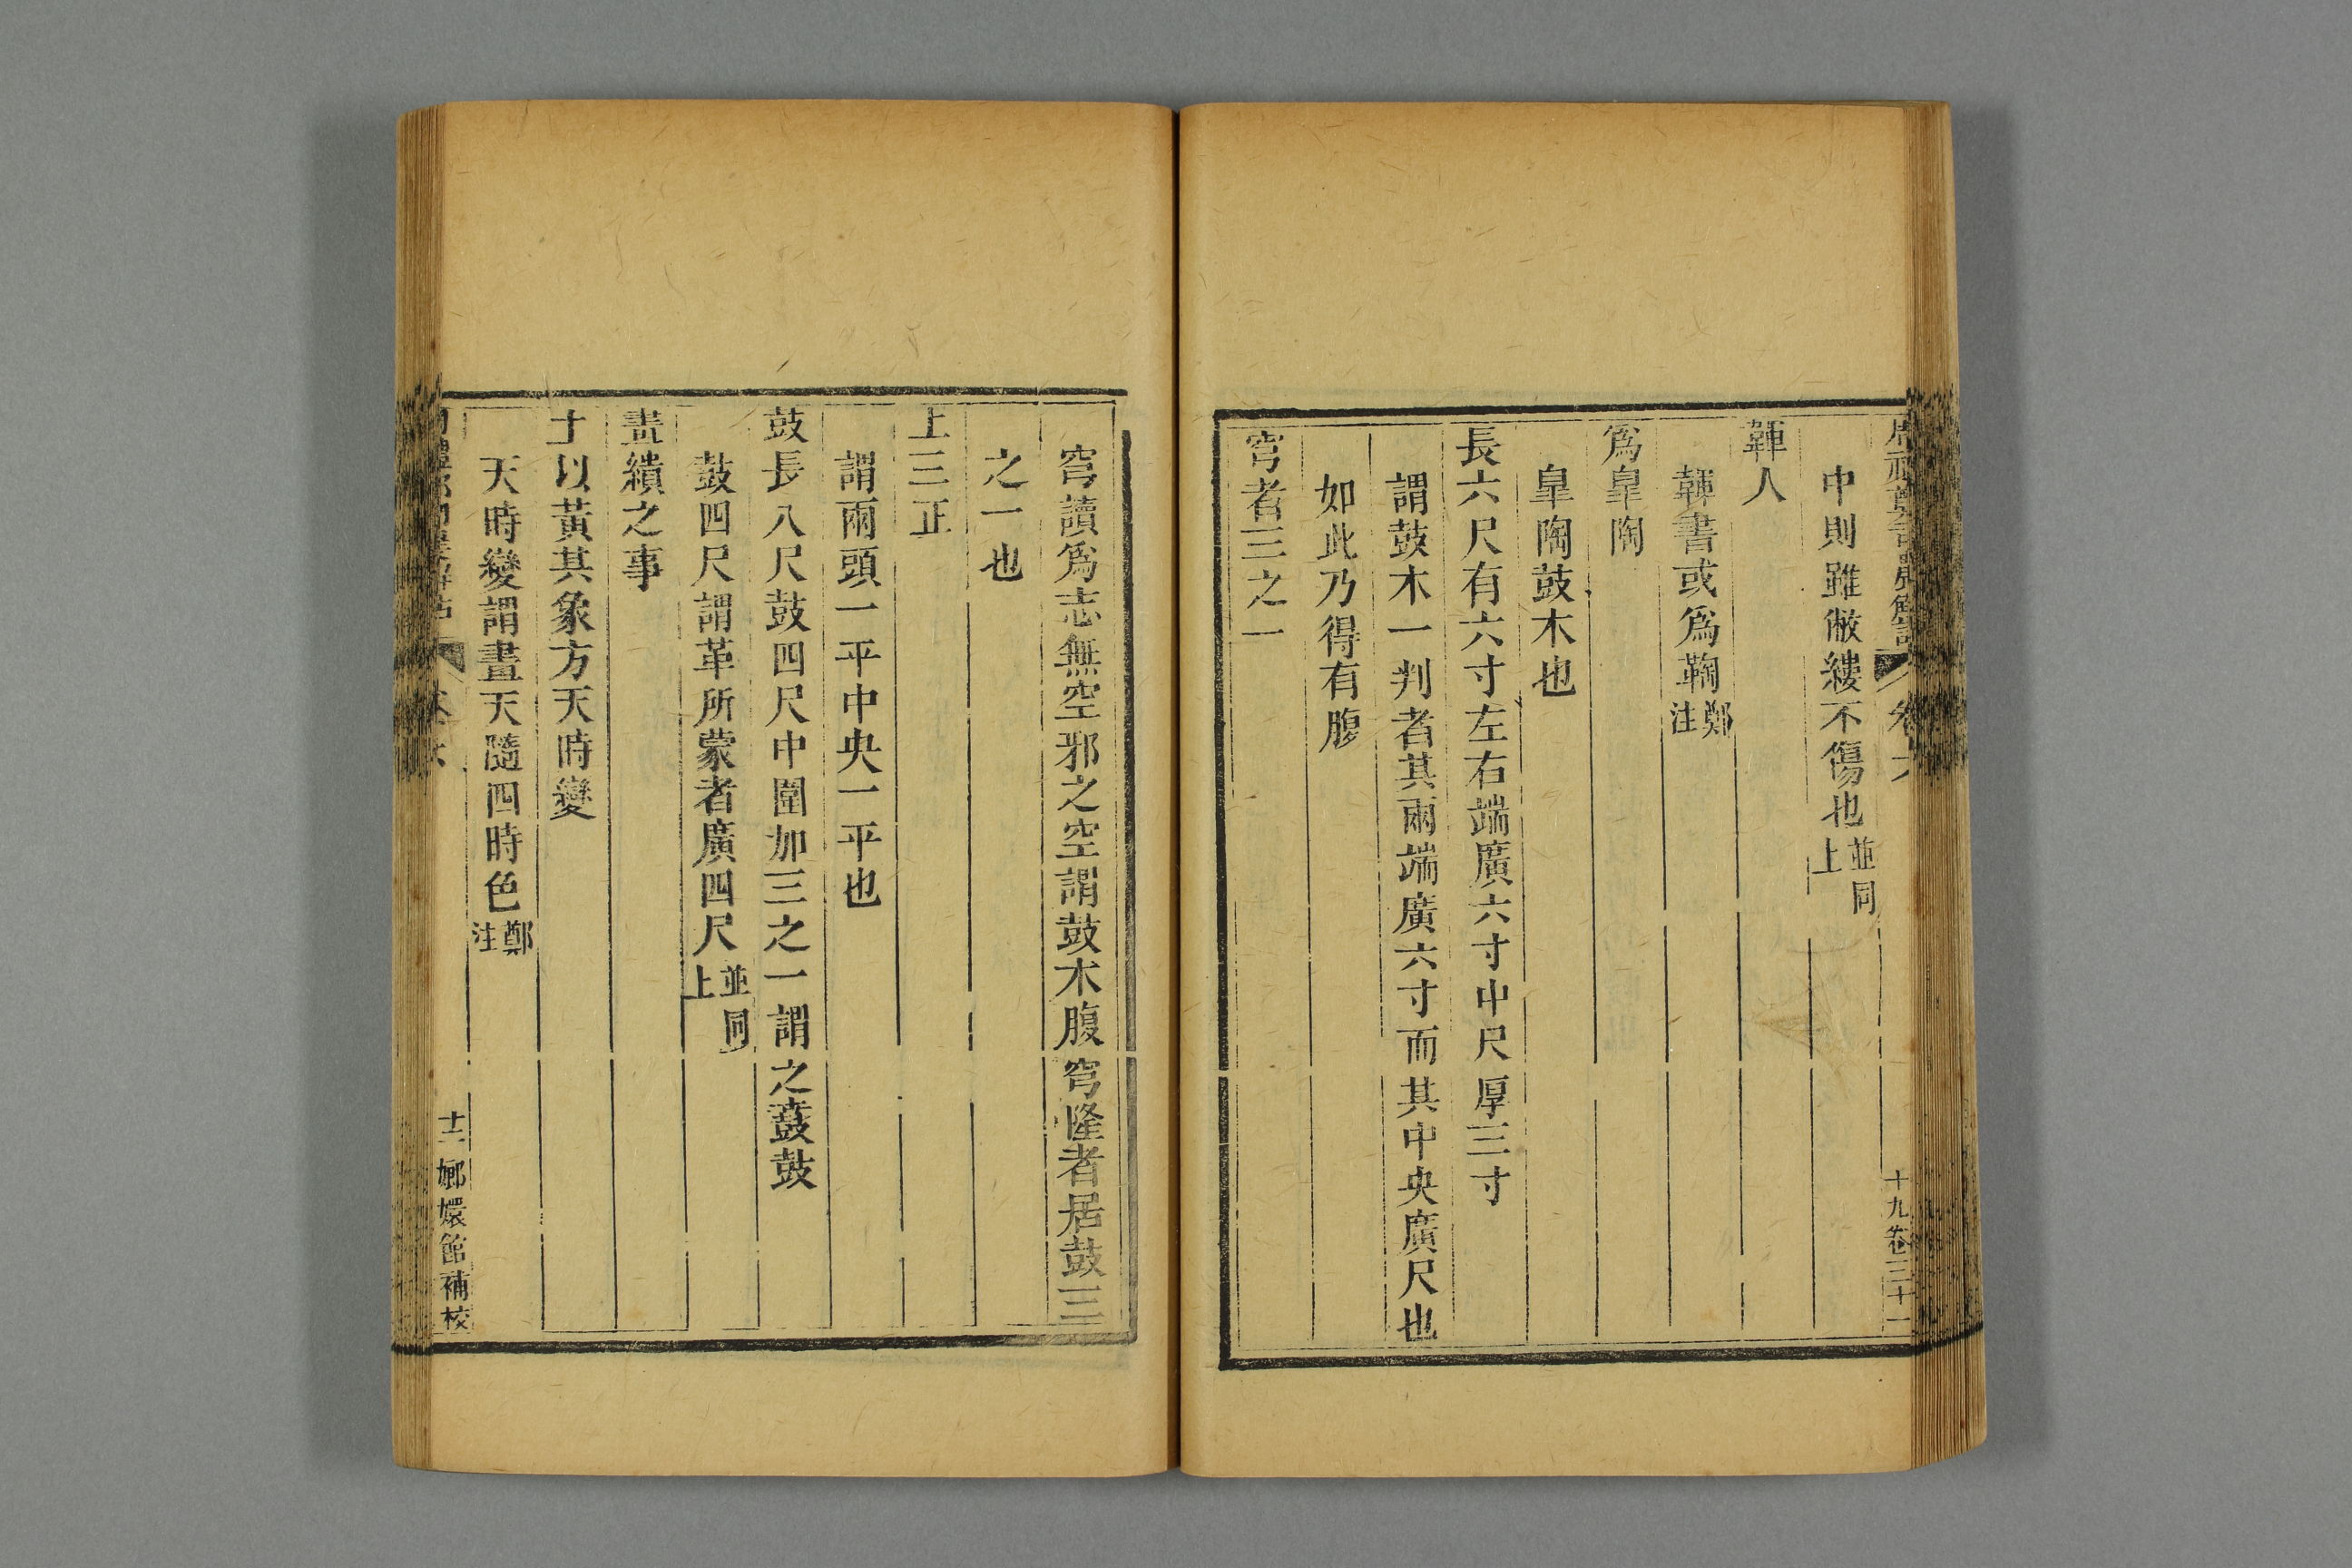 中則雖敝縷不傷也並同上
韗人
韗書或爲鞠鄭注
爲臯陶
臯陶鼓木也
長六尺有六寸左右端廣六寸中尺厚三寸
謂鼓木一判者其兩端廣六寸而其中央廣尺也
如此乃得有腹
穹者三之一
卷六
十九卷三十一
穹讀爲志無空邪之空謂鼓木腹穹隆者居鼓三
之一也
上三正
謂兩頭一平中央一平也
鼓長八尺鼓四尺中圍加三之一謂之鼖鼓
鼓四尺謂革所蒙者廣四尺並同上
畫繢之事
土以黃其象方天時變
天時變謂畫天隨四時色鄭注
十二
嫏嬛館補校